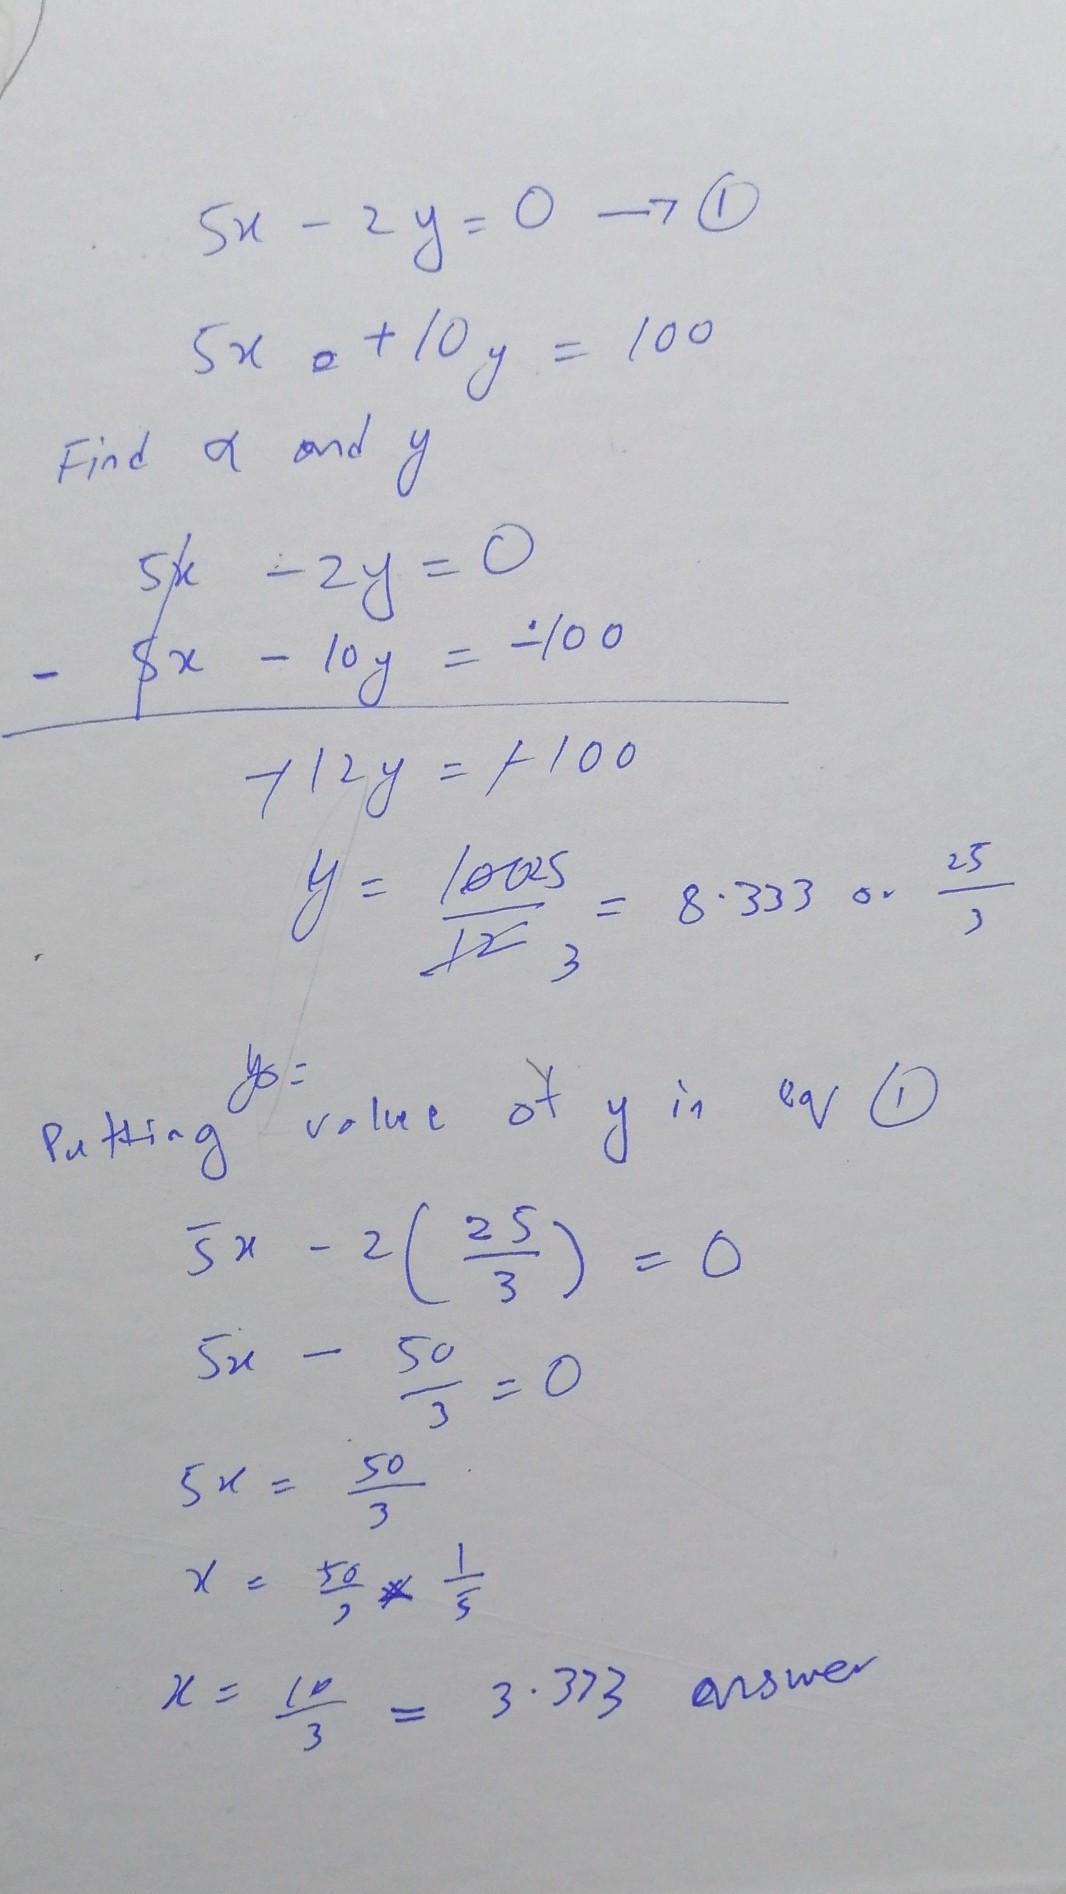 5x - 2y = 0 → ①
5x + 10y = 100
Find x and y
5x - 2y = 0
- 5x - 10y = -100
-12y = -100
y = 100 25 / 12 3 = 8.333 or 25/3
y =
Putting value of y in eq ①
5x - 2(25/3) = 0
5x - 50/3 = 0
5x = 50/3
x = 50/3 * 1/5
x = 10/3 = 3.333 answer